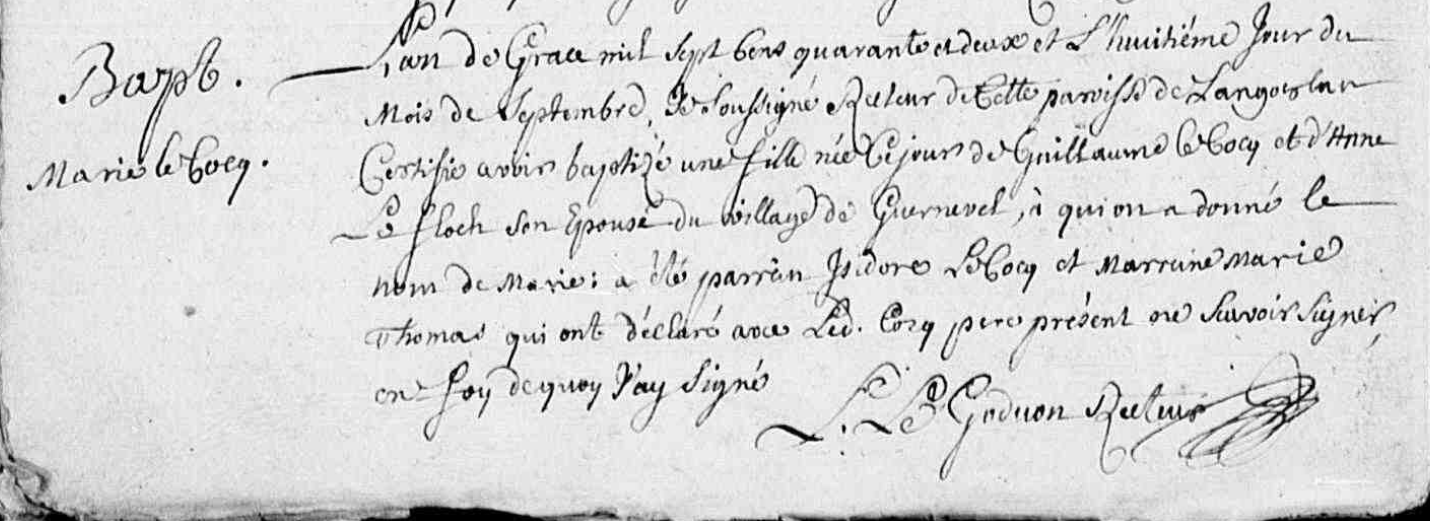 Bapt.
Marie le Cocq.
L'an de Grace mil sept Cens quarante et deux et L'huitiéme Jour du
Mois de Septembre, Je Soussigné Recteur de Cette parroisse de Langoelan
Certifie avoir baptizé une fille née Ce jour de Guillaume le Cocq et d'Anne
Le floch son Epouse du village de Guernevel, à qui on a donné le
nom de Marie: a été parrain Isidore Le Cocq et Marraine Marie
Thomas qui ont déclaré avec Led. Cocq pere présent ne Scavoir Signer,
en foy de quoy J'ay Signé
L. Le Goduon Recteur